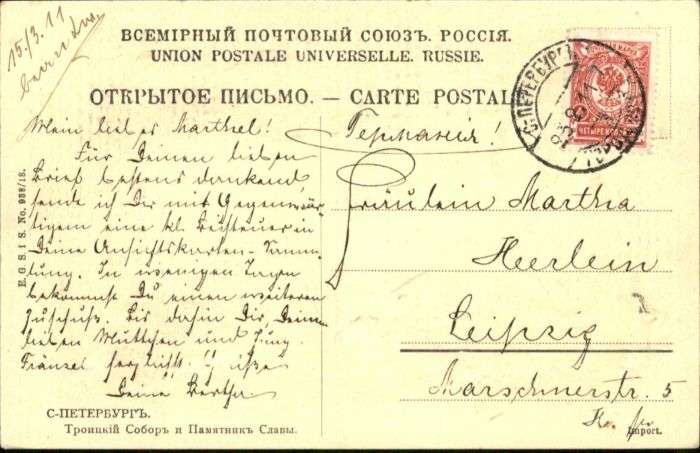 15./3. 11
ВСЕМІРНЫЙ ПОЧТОВЫЙ СОЮЗЪ. РОССІЯ.
UNION POSTALE UNIVERSELLE. RUSSIE.
ОТКРЫТОЕ ПИСЬМО. — CARTE POSTAL
С.ПЕТЕРБУРГЪ
Mein liebes Marthel!
Für Deinen lieben
Brief bestens dankend,
sende ich Dir mit Gegenwär-
tigem eine kl. Beisteuer in
Deine Ansichtskarten-Samm-
lung. In wenigen Tagen
bekommst Du einen weiteren
Zuschuß. Bis dahin Dir, Deinem
lieben Muttchen und
Fränzel herzlichst
Deine Bertha
Германія!
Fräulein Martha
Heerlein
Leipzig
Marschnerstr. 5
E. G. S. I S. No. 938/18.
С-ПЕТЕРБУРГЪ.
Троицкій Соборъ и Памятникъ Славы.
Import.